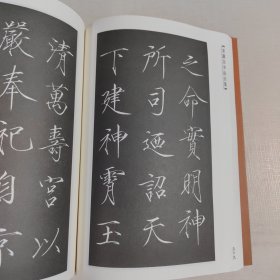 之命實明神
所司迺詔天
下建神霄玉
清萬壽宮以
嚴奉祀自京